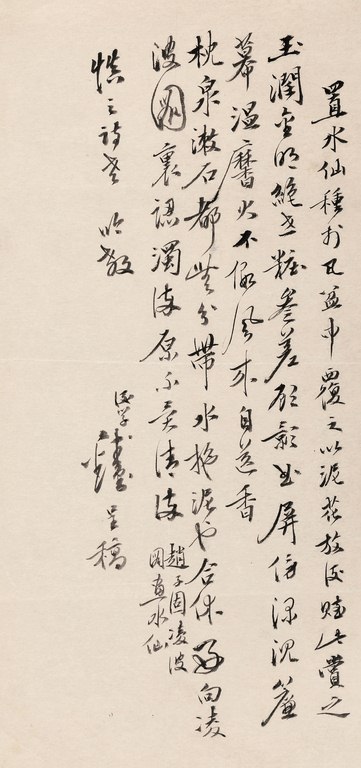 置水仙種於瓦盆中覆之以泥花放後賦此賞之
玉潤金明絕世粧參差顧影出屏傍深沉簾
幕溫黁火不假風來自送香
枕泉漱石都無分帶水拖泥也合休好向凌
波圖裏認濁流原不異清流
趙子固凌波
圖畫水仙
慎之詩老吟教
呈稿